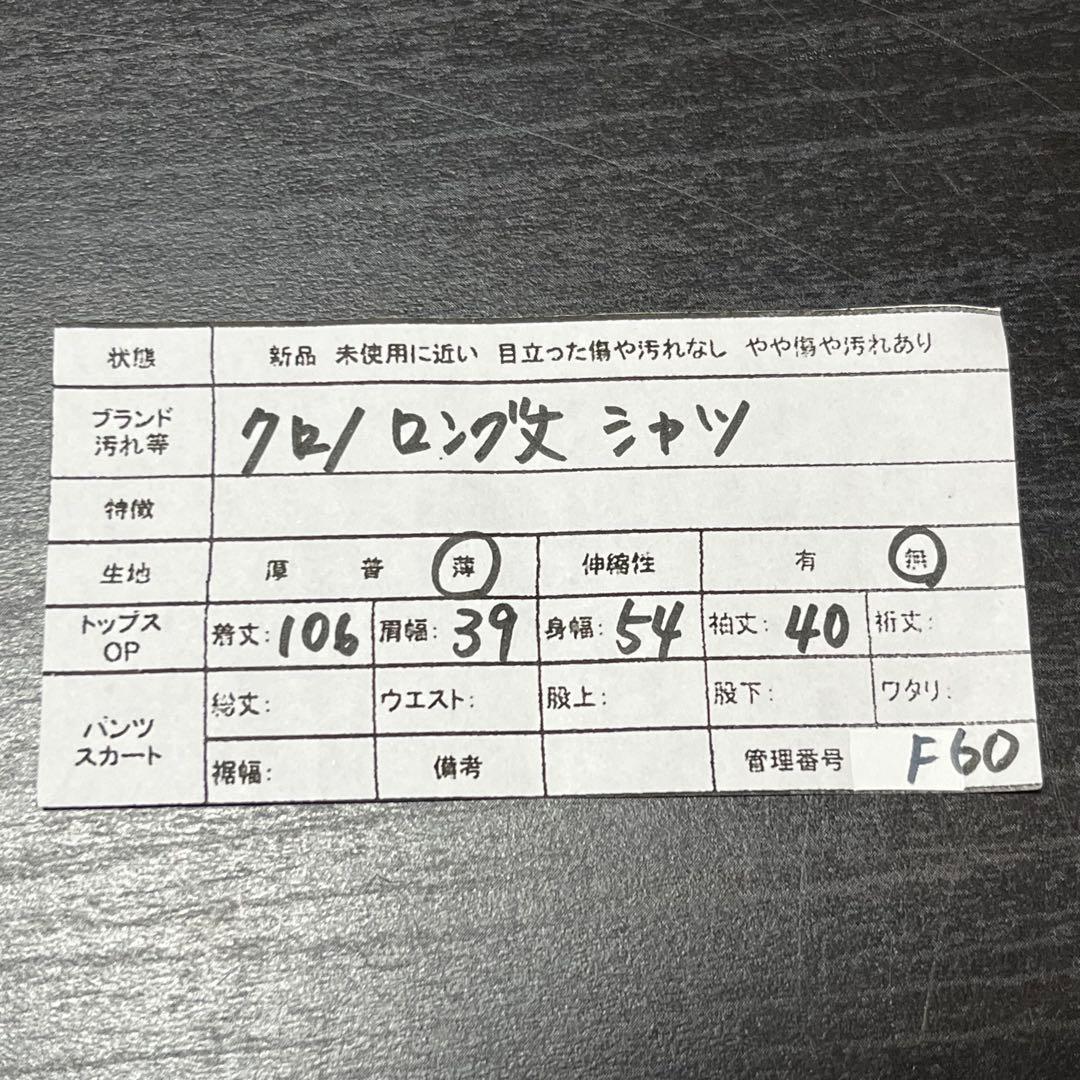 状態 新品 未使用に近い 目立った傷や汚れなし やや傷や汚れあり
ブランド
汚れ等
クロ/ロング丈 シャツ
特徴
生地 厚 普 薄 伸縮性 有 無
トップス
OP
着丈:106 肩幅:39 身幅:54 袖丈:40 裄丈:
パンツ
スカート
総丈: ウエスト: 股上: 股下: ワタリ:
裾幅: 備考 管理番号 F60